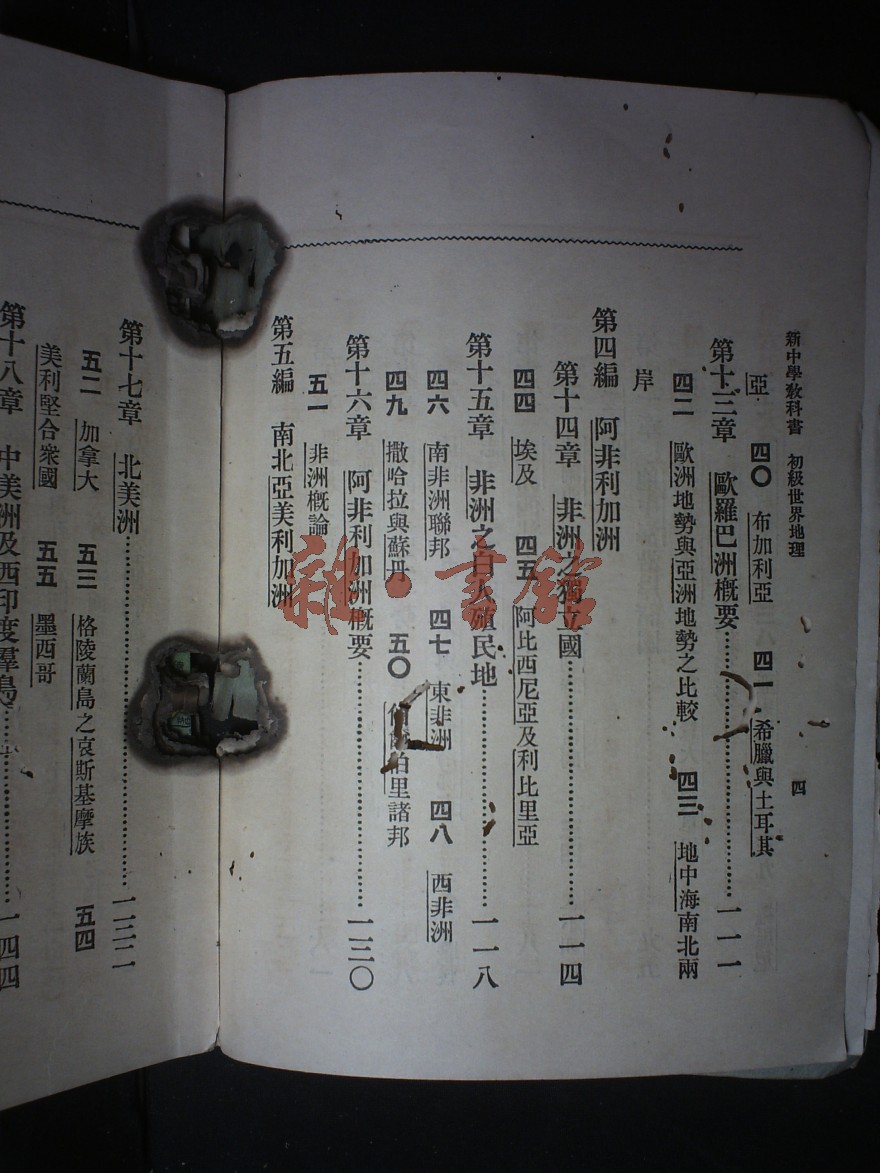 新中學敎科書　初級世界地理　四
亞　四〇　布加利亞　四一　希臘與土耳其
第十三章　歐羅巴洲槪要……一一一
四二　歐洲地勢與亞洲地勢之比較　四三　地中海南北兩
岸
第四編　阿非利加洲
第十四章　非洲之獨立國……一一四
四四　埃及　四五　阿比西尼亞及利比里亞
第十五章　非洲之白人殖民地……一一八
四六　南非洲聯邦　四七　東非洲　四八　西非洲
四九　撒哈拉與蘇丹　五〇　伯里諸邦
第十六章　阿非利加洲槪要……一三〇
五一　非洲槪論
第五編　南北亞美利加洲
第十七章　北美洲……一三二
五二　加拿大　五三　格陵蘭島之哀斯基摩族　五四
美利堅合衆國　五五　墨西哥
第十八章　中美洲及西印度羣島……一四四
雜·書館